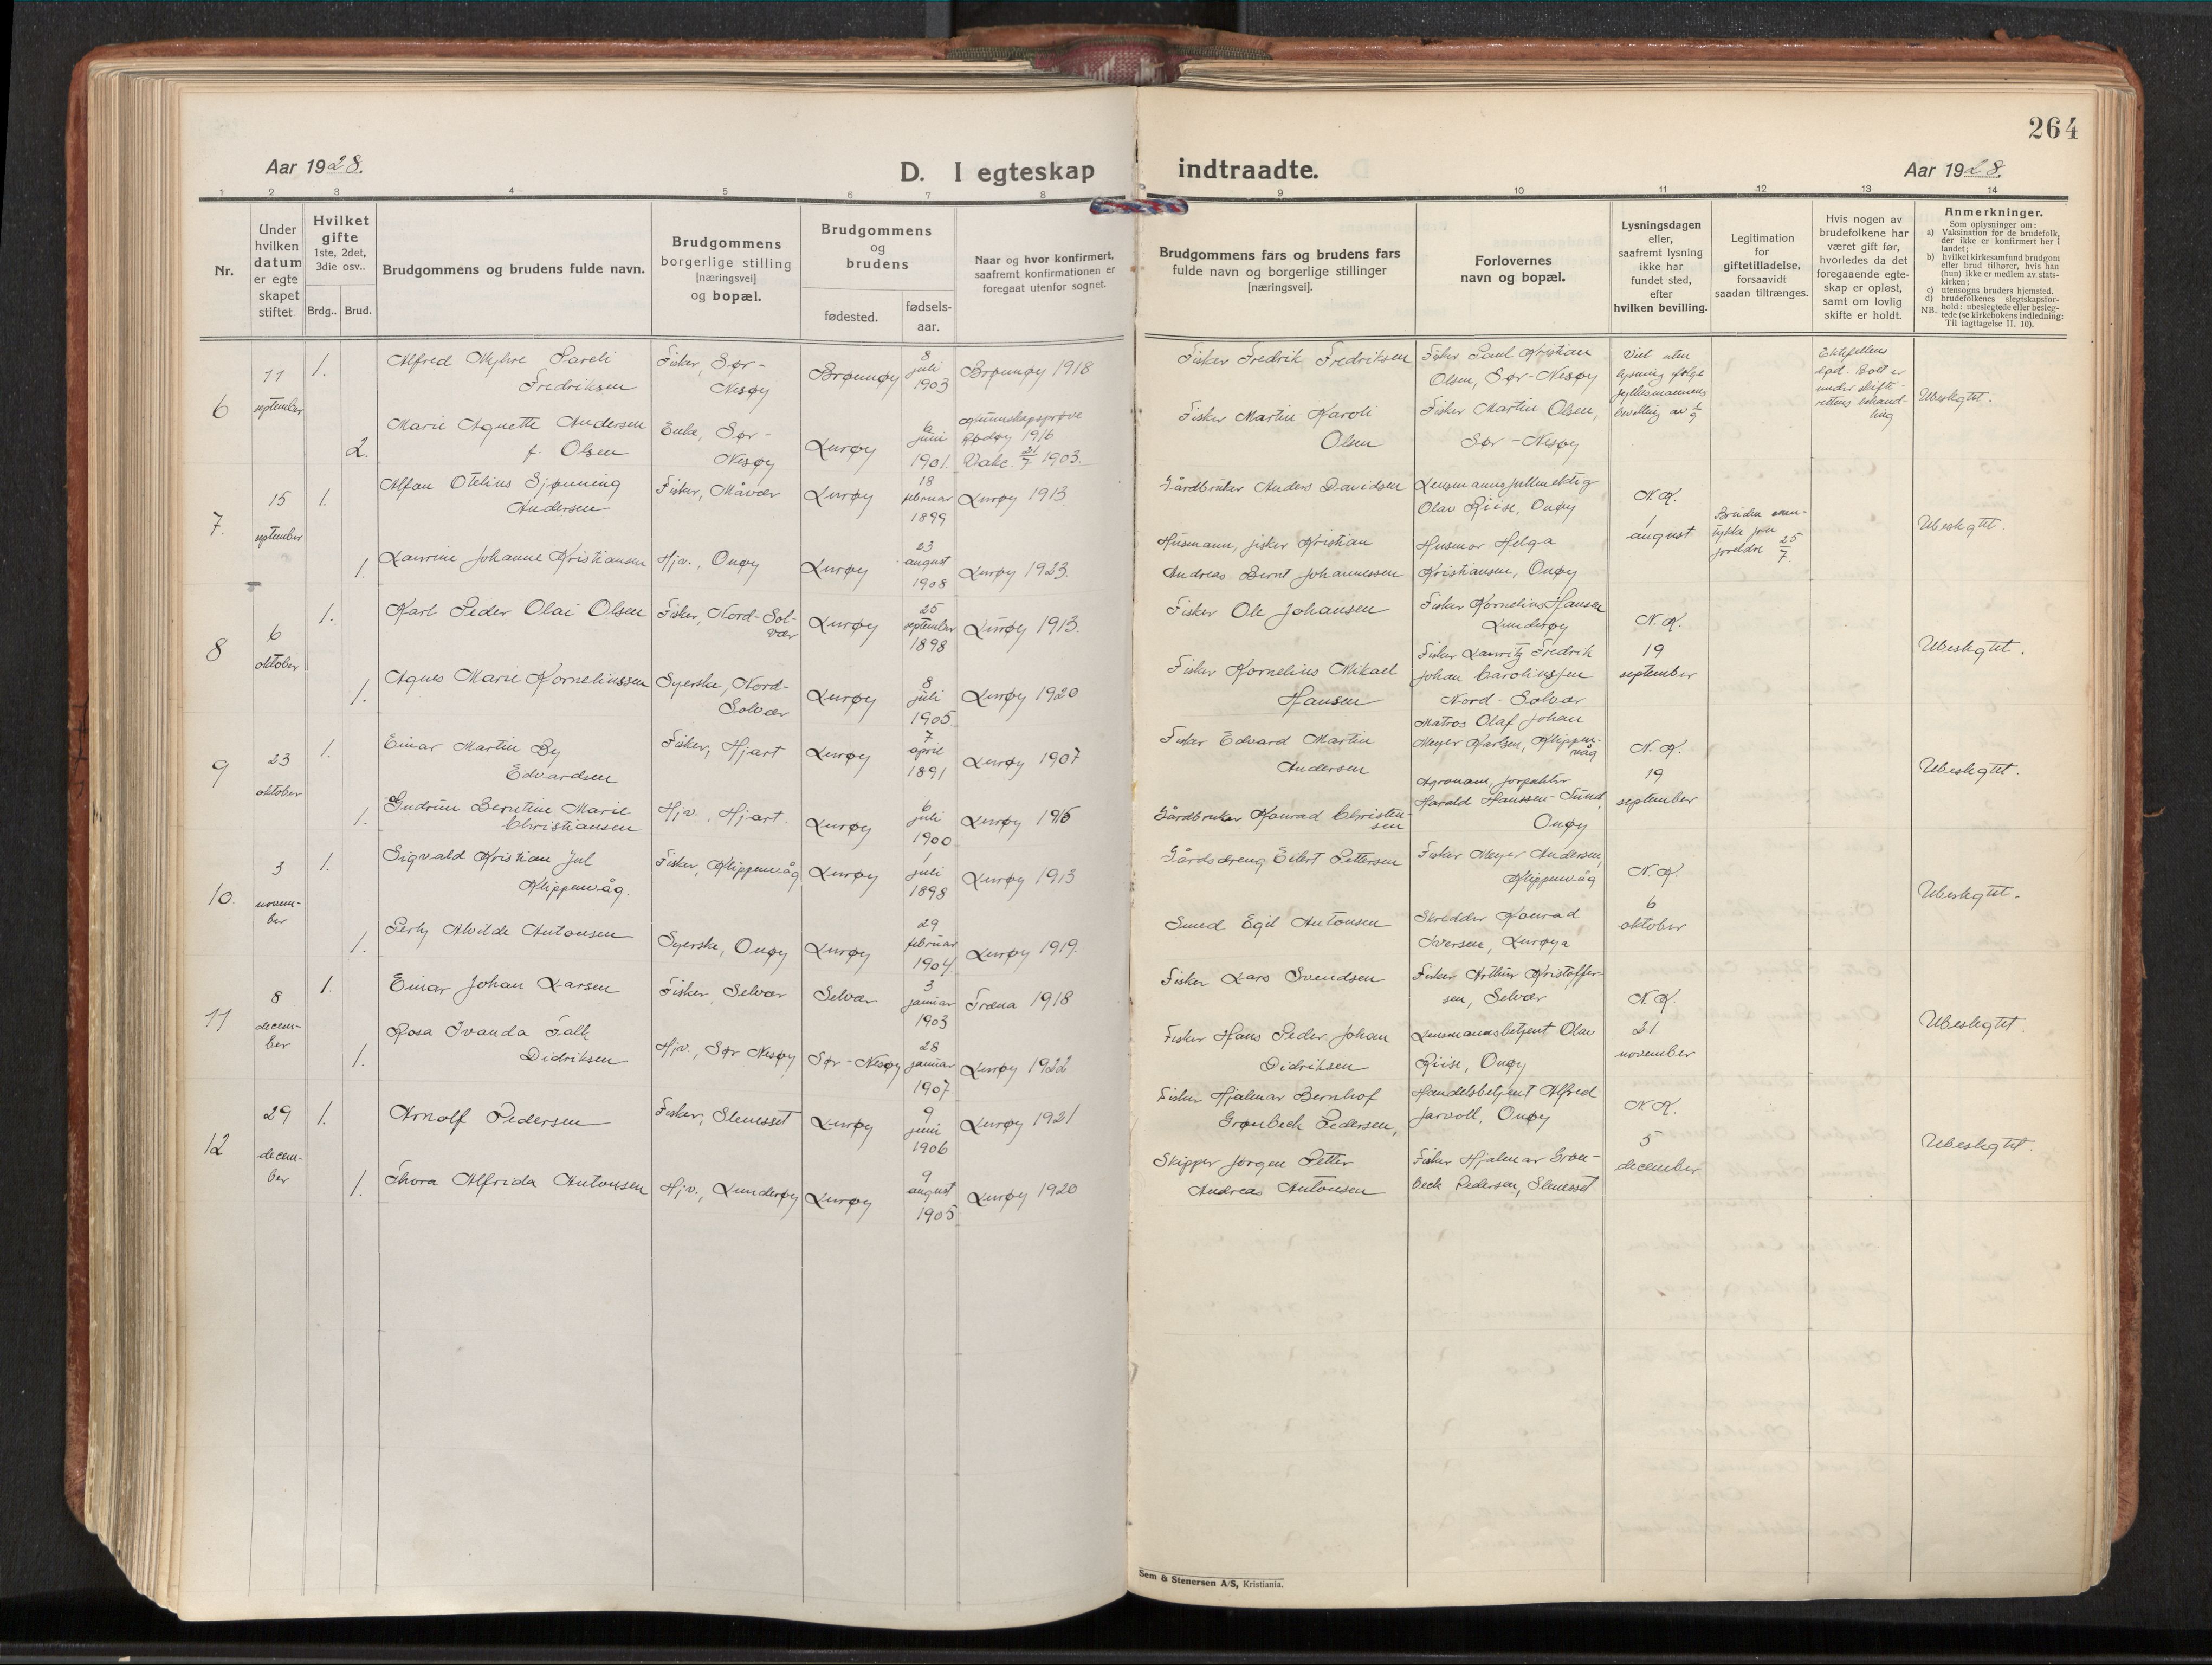 264
Aar 1928.
D. I egteskap
indtraadte.
Aar 1928.
1 2 3 4 5 6 7 8 9 10 11 12 13 14
Nr.
Under
hvilken
datum
er egte
skapet
stiftet
Hvilket
gifte
1ste, 2det,
3die osv..
Brdg.. Brud.
Brudgommens og brudens fulde navn.
Brudgommens
borgerlige stilling
[næringsvei]
og bopæl.
Brudgommens
og
brudens
fødested.
fødsels-
aar.
Naar og hvor konfirmert,
saafremt konfirmationen er
foregaat utenfor sognet.
Brudgommens fars og brudens fars
fulde navn og borgerlige stillinger
[næringsvei].
Forlovernes
navn og bopæl.
Lysningsdagen
eller,
saafremt lysning
ikke har
fundet sted,
efter
hvilken bevilling.
Legitimation
for
giftetilladelse,
forsaavidt
saadan tiltrænges.
Hvis nogen av
brudefolkene har
været gift før,
hvorledes da det
foregaaende egte-
skap er opløst,
samt om lovlig
skifte er holdt.
Anmerkninger.
Som oplysninger om:
a) Vaksination for de brudefolk,
der ikke er konfirmert her i
landet;
b) hvilket kirkesamfund brudgom
eller brud tilhører, hvis han
(hun) ikke er medlem av stats-
kirken;
c) utensogns bruders hjemsted.
d) brudefolkenes slegtskapsfor-
hold: ubeslegtede eller besleg-
NB. tede (se kirkebokens indledning:
Til iagttagelse II. 10).
6
11
september
1.
Alfred Myhre Pareli
Fredriksen
Fisker, Sør-
Nesøy
Brønnøy
8
juli
1903
Brønnøy 1918
Fisker Fredrik Fredriksen
Fisker Paul Kristian
Olsen, Sør-Nesøy
Viet uten
lysning ifølge
fylkesmannens
bevilling av 1/9
Ektefellen
død. Bolt er
under skifte-
rettens behand-
ling
Ubeslegtet.
2.
Marie Agnette Andersen
f. Olsen
Enke, Sør-
Nesøy
Lurøy
6
juni
1901.
Kunnskapsprøve
Rødøy 1916
Vakc. 21/7 1903.
Fisker Martin Karoli
Olsen
Fisker Martin Olsen,
Sør-Nesøy
7.
15
september
1.
Alfon Otelius Sjønning
Andersen
Fisker, Måvær
Lurøy
18
februar
1899
Lurøy 1913
Gårdbruker Anders Davidsen
Lensmannsfullmektig
Olav Riise, Onøy
N. K.
1
august
Bruden sam-
tykke fra
foreldre 25/7.
Ubeslegtet.
1.
Laurine Johanne Kristiansen
Hjv., Onøy
Lurøy
23
august
1908
Lurøy 1923.
Husmann, fisker Kristian
Andreas Bernt Johannessen
Husmor Helga
Kristiansen, Onøy
8
6
oktober
1.
Karl Peder Olai Olsen
Fisker, Nord-Sol-
vær
Lurøy
25
september
1898
Lurøy 1913.
Fisker Ole Johansen
Fisker Kornelius Hansen
Lunderøy
N. K.
19
september
Ubeslegtet.
1.
Agnes Marie Korneliussen
Syerske, Nord-
Solvær
Lurøy
8
juli
1905
Lurøy 1920
Fisker Kornelius Mikael
Hansen
Fisker Lauritz Fredrik
Johan Carolinssen
Nord-Solvær
9
23
oktober
1.
Einar Martin By
Edvardsen
Fisker, Hjart
Lurøy
7
april
1891
Lurøy 1907
Fisker Edvard Martin
Andersen
Matros Olaf Johan
Meyer Karlsen, Klippen-
våg
N. K.
19
september
Ubeslegtet.
1.
Gudrun Berntine Marie
Christiansen
Hjv., Hjart.
Lurøy
6
juli
1900
Lurøy 1915
Gårdbruker Konrad Christen-
sen
Agronom, forpakter
Harald Hanssen-Sund,
Onøy
10.
3
novem-
ber
1.
Sigvald Kristian Jul
Klippenvåg.
Fisker, Klippenvåg
Lurøy
1
juli
1898
Lurøy 1913
Gårdsdreng Eilert Pettersen
Fisker Meyer Andersen,
Klippenvåg
N. K.
6
oktober
Ubeslegtet.
1.
Perly Alvilde Antonsen
Syerske, Onøy
Lurøy
29
februar
1904.
Lurøy 1919.
Smed Egil Antonsen
Skredder Konrad
Iversen, Lurøya
11
8
decem-
ber
1.
Einar Johan Larsen
Fisker, Selvær
Selvær
3
januar
1903
Træna 1918
Fisker Lars Svendsen
Fisker Arthur Kristoffer-
sen, Selvær
N. K.
21
november
Ubeslegtet.
1.
Rosa Ivanda Falk
Didriksen
Hjv., Sør Nesøy
Sør-Nesøy
28
januar
1907.
Lurøy 1922
Fisker Hans Peder Johan
Didriksen
Lensmannsbetjent Olav
Riise, Onøy
12
29
decem-
ber
1.
Arnolf Pedersen
Fisker, Slenesset
Lurøy
9
juni
1906
Lurøy 1921
Fisker Hjalmar Bernhof
Grønbeck Pedersen,
Handelsbetjent Alfred
Jarvoll, Onøy
N. K.
5
december
Ubeslegtet.
1.
Thora Alfrida Antonsen
Hjv., Lunderøy
Lurøy
9
august
1905
Lurøy 1920
Skipper Jørgen Petter
Andreas Antonsen
Fisker Hjalmar Grøn-
beck Pedersen, Slenesset
Sem & Stenersen A/S, Kristiania.